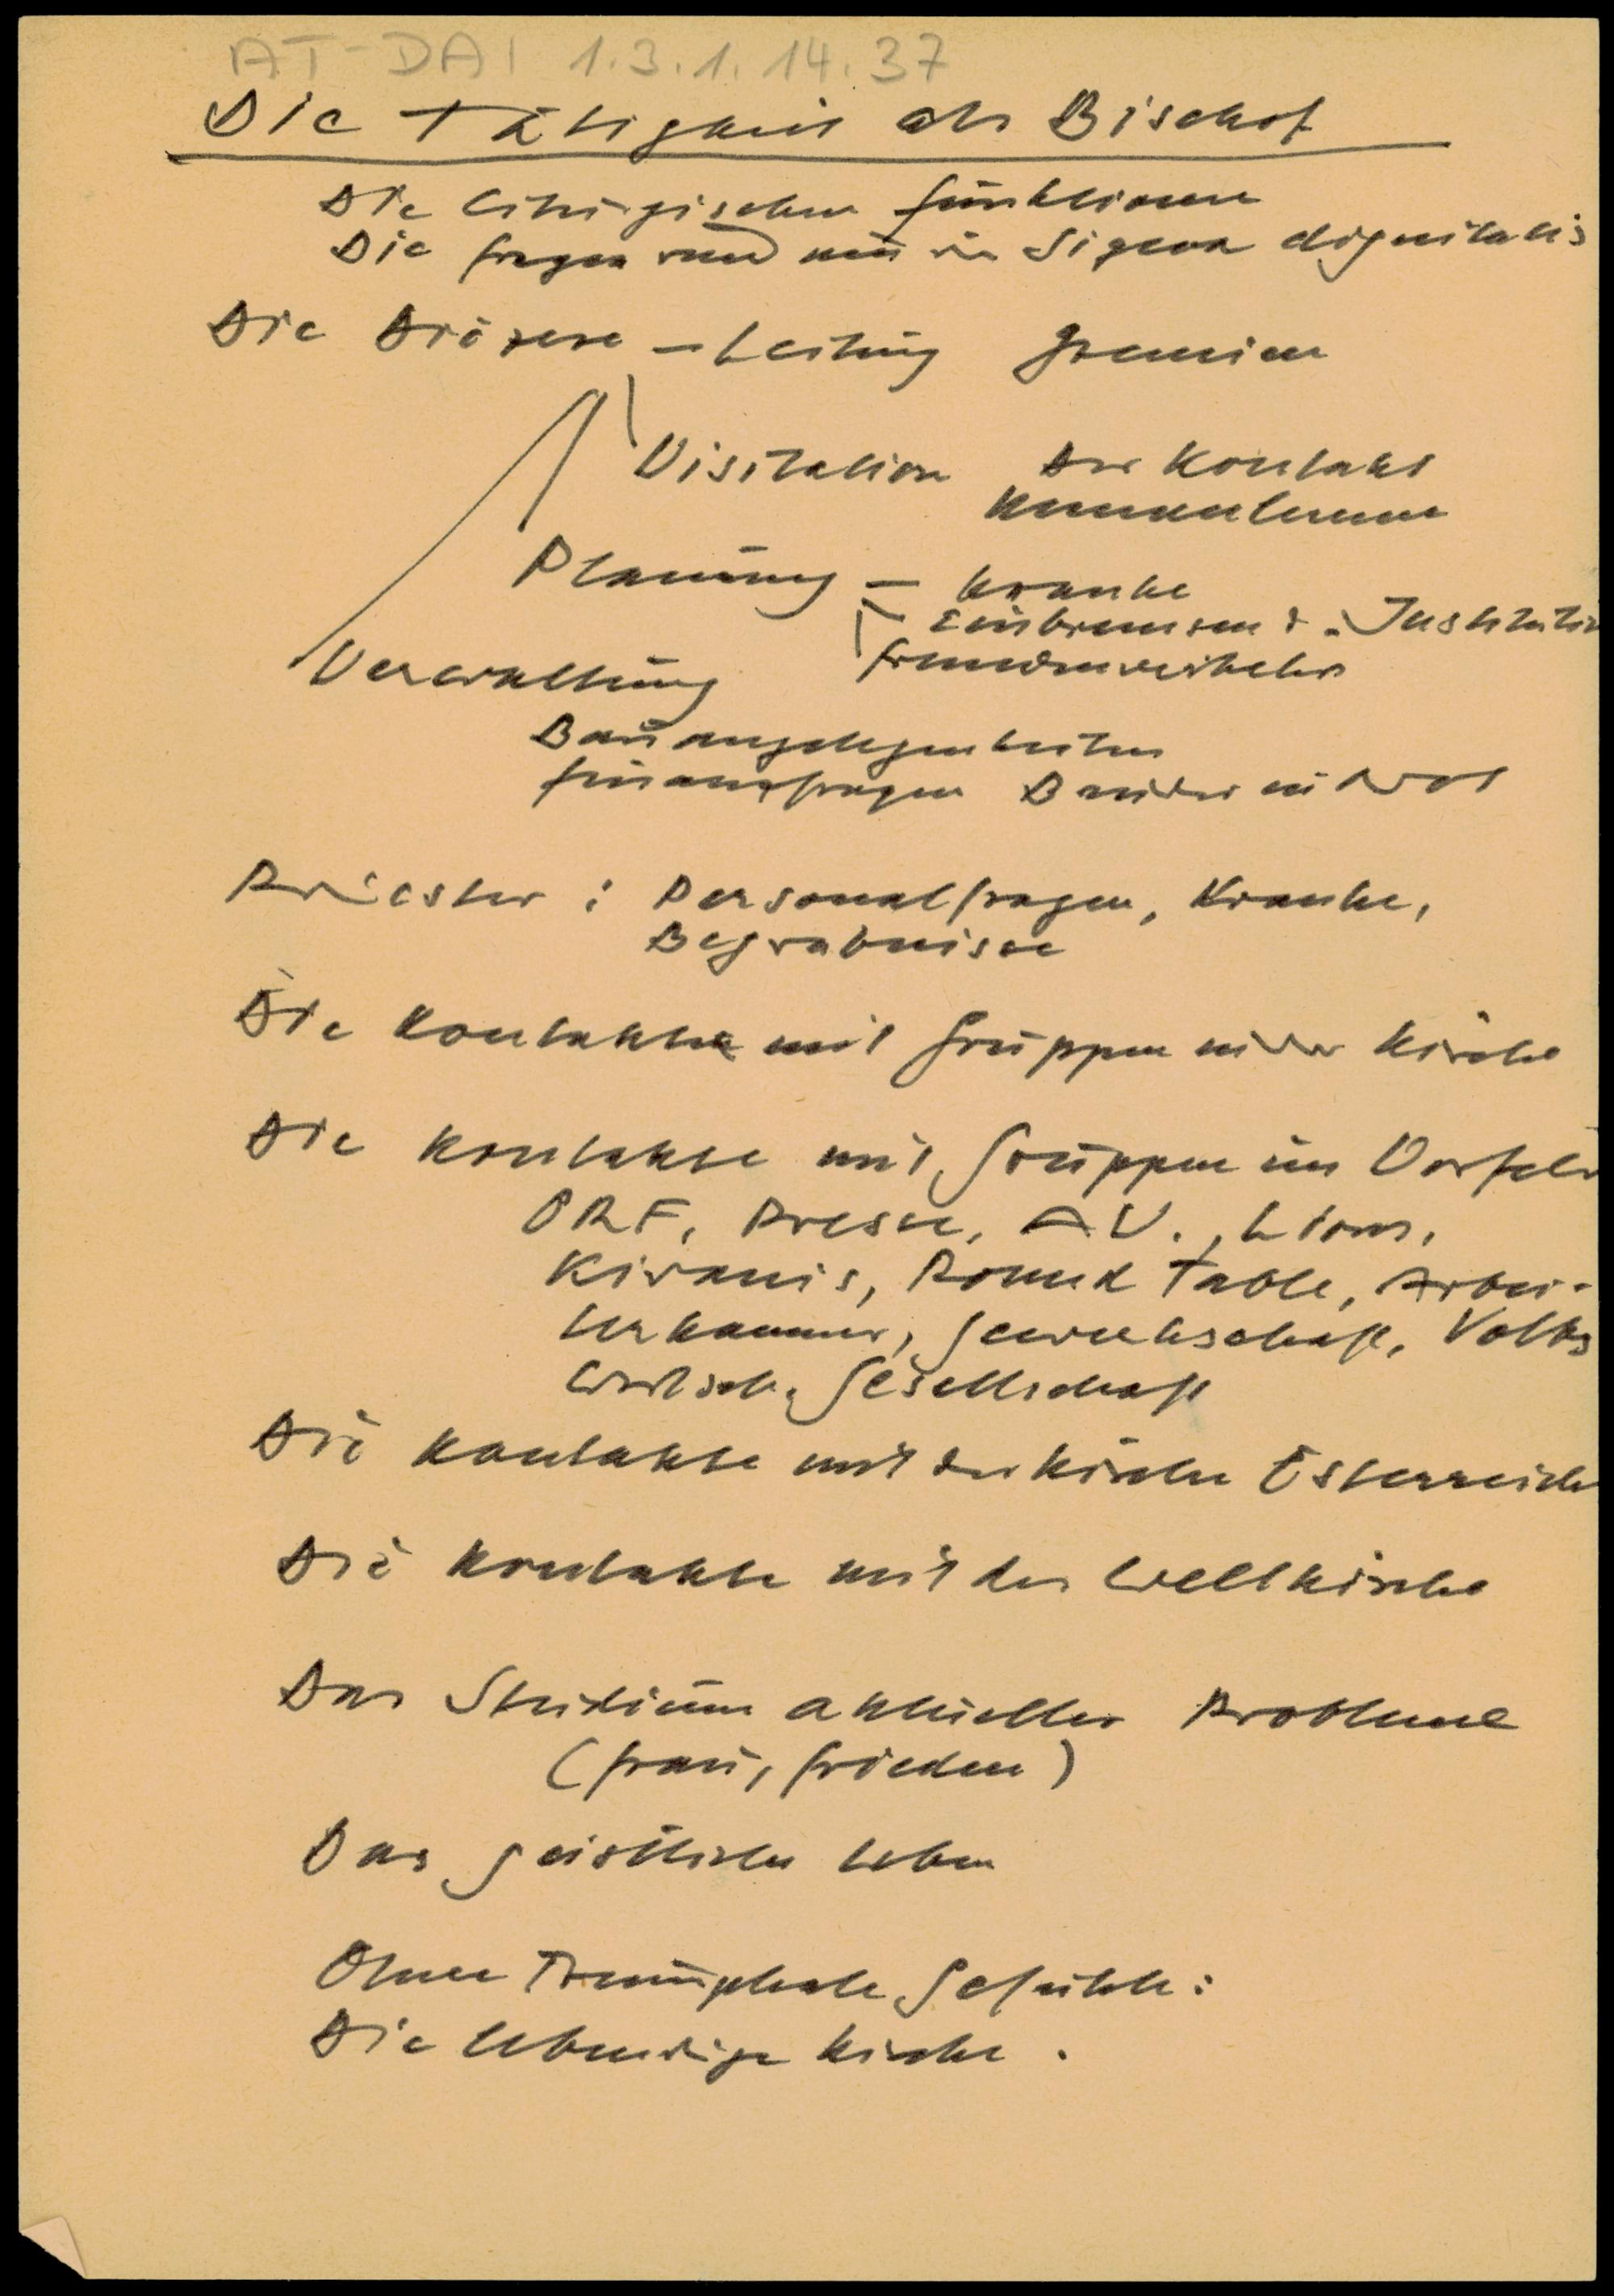 AT-DAI 1.3.1.14.37
Die Tätigkeit als Bischof
Die liturgischen Funktionen
Die Fragen rund um die Signa dignitatis
Die Diözese - Leitung Gremien
Visitation Der Kontakt
Kennenlernen
Planung - Kranke
Einbremsen d. Institution
Fremdenverkehr
Verwaltung
Bauangelegenheiten
Finanzfragen Bruder in Not
Priester: Personalfragen, Kranke,
Begräbnisse
Die Kontakte mit Gruppen in der Kirche
Die Kontakte mit Gruppen im Vorfeld
ORF, Presse, AV., Lions,
Kiwanis, Round Table, Arbei-
terkammer, Gewerkschaft, Volks
wirtsch. Gesellschaft
Die Kontakte mit der Kirche Österreich
Die Kontakte mit der Weltkirche
Das Studium aktueller Probleme
(Frau, Frieden)
Das geistliche Leben
Ohne Triumphale Gefühle:
Die lebendige Kirche.